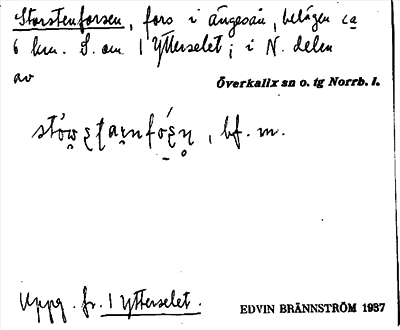 Storstenforsen, fors i ängesån, belägen ca
6 km. S. om 1 Ytterselet; i N. delen
av
Överkalix sn o. tg Norrb. l.
, bf. m.
Uppg. fr. 1 Ytterselet.
EDVIN BRÄNNSTRÖM 1937